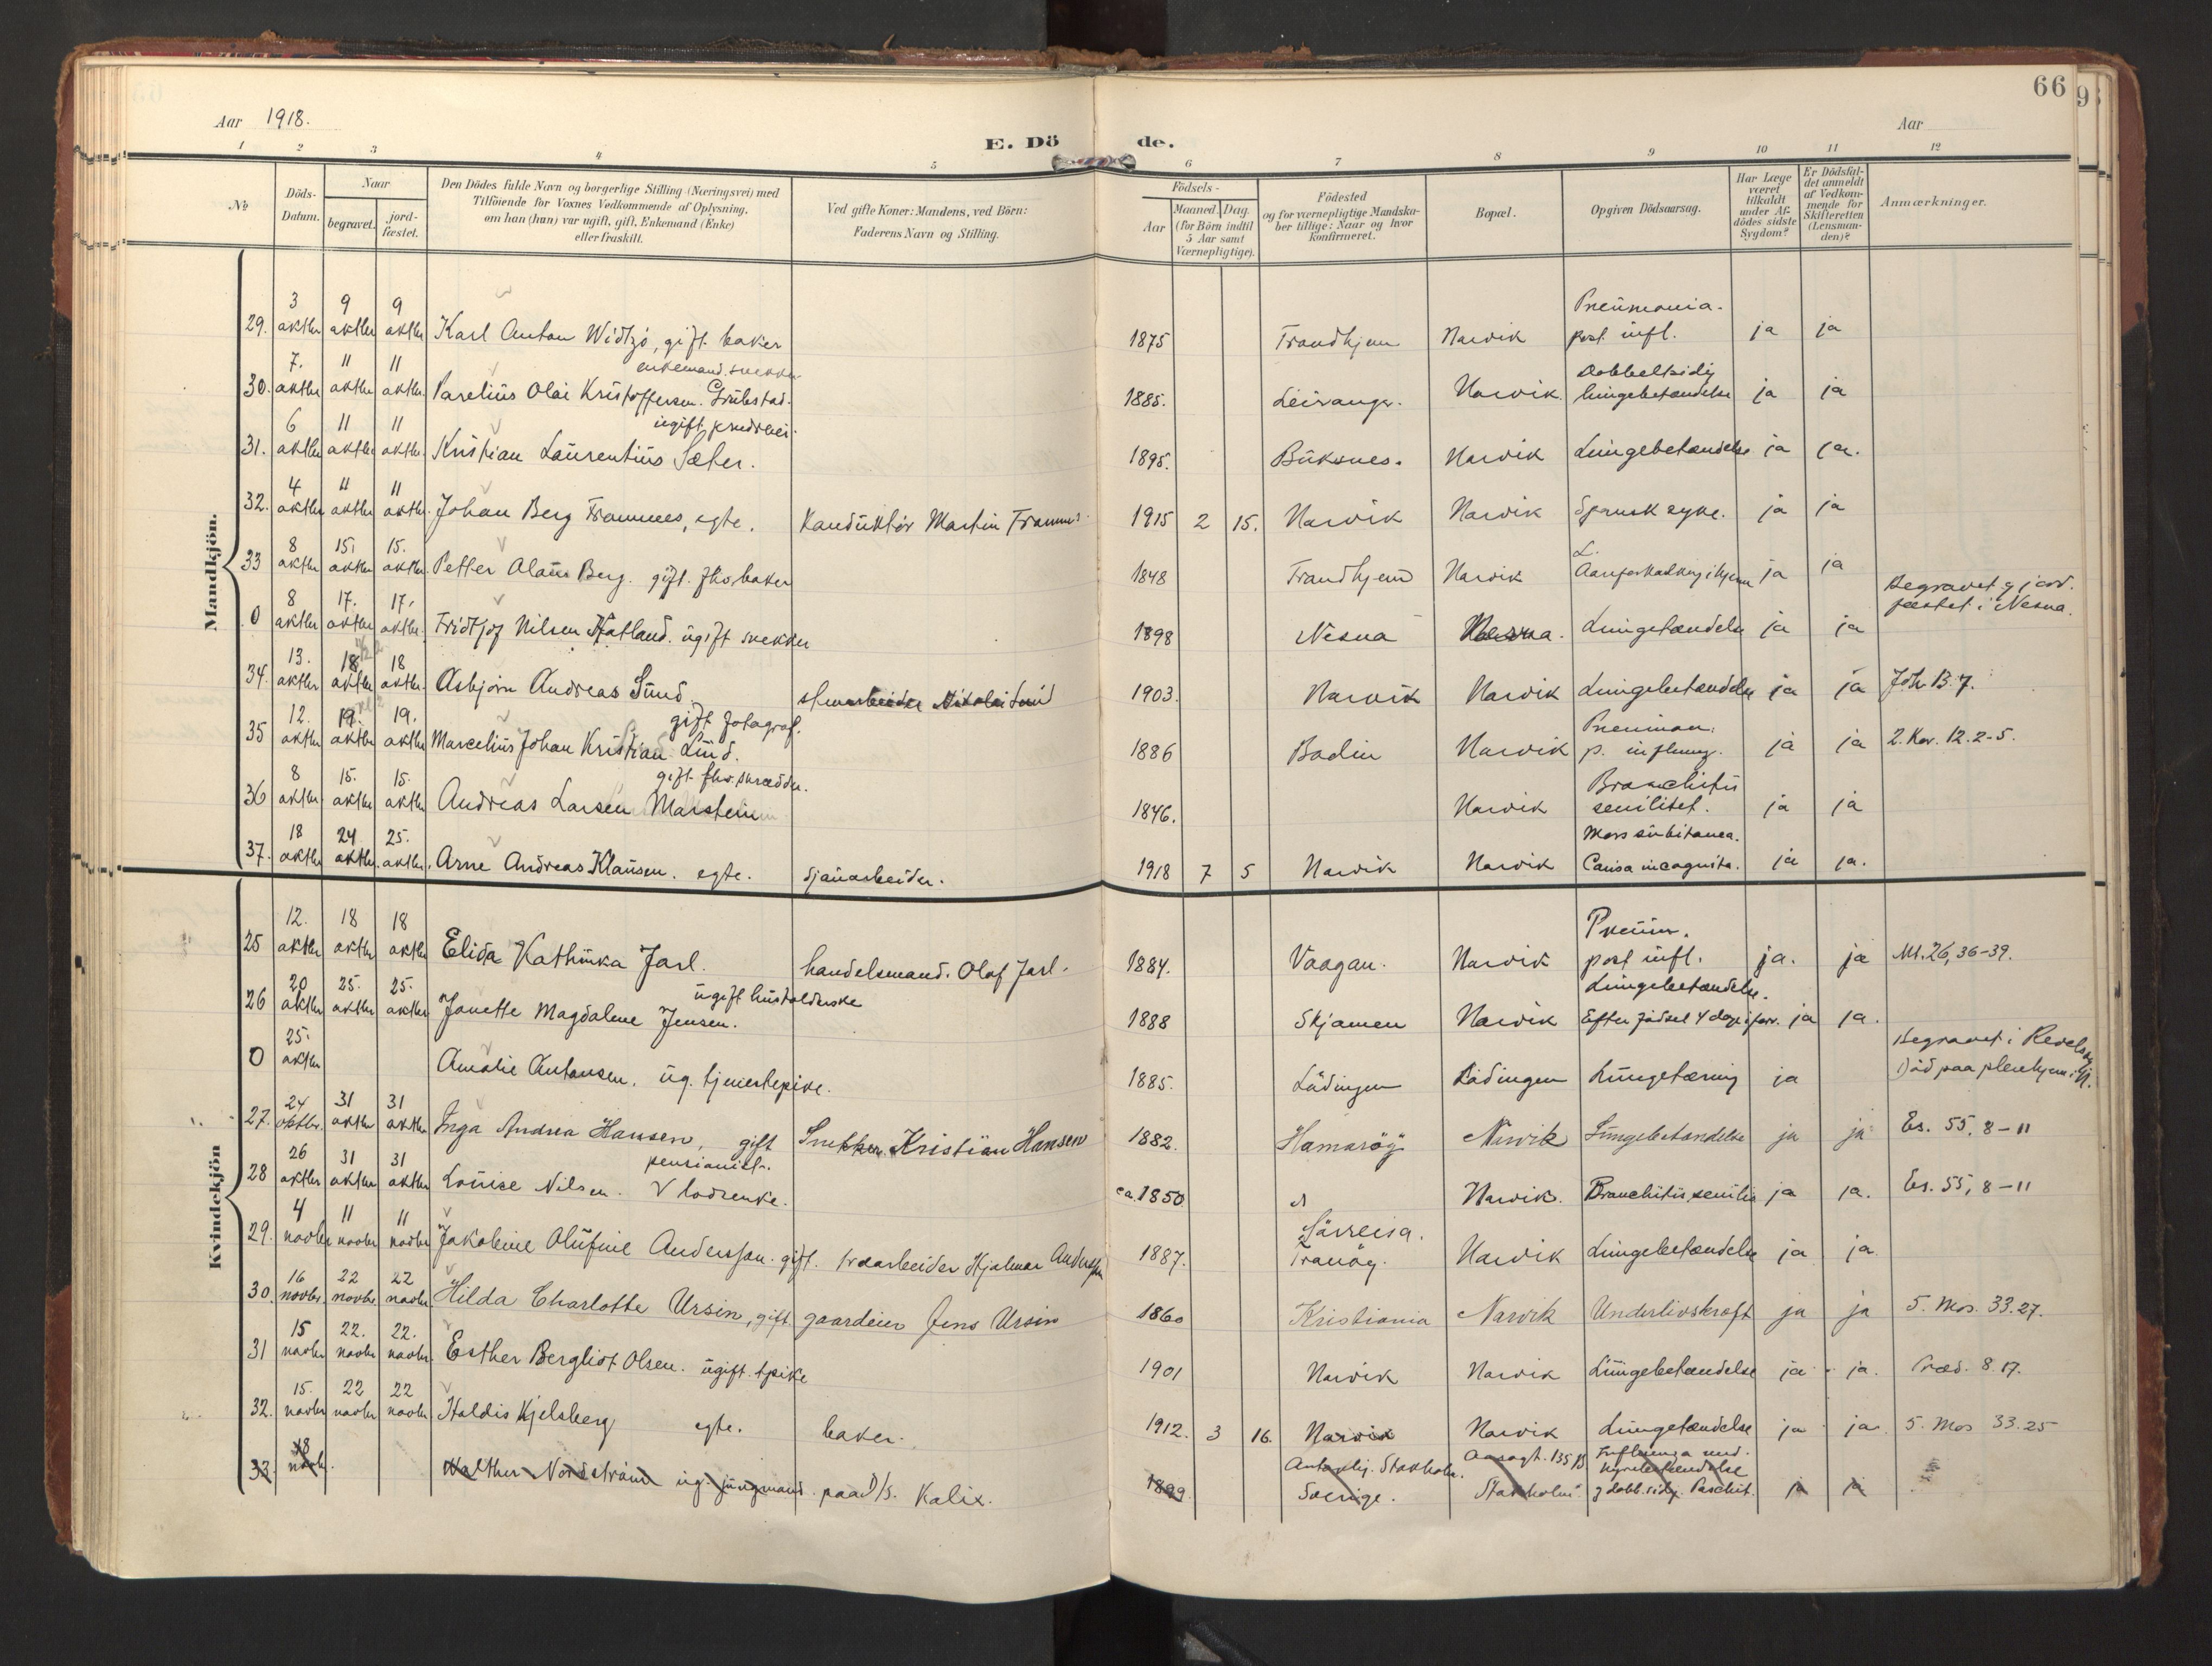 66
Aar 1918.
Aar
E. Döde.
1 2 3 4 5 6 7 8 9 10 11 12
No
Döds-Datum.
Naar
begravet.
jord-fæstet.
Den Dödes fulde Navn og borgerlige Stilling (Næringsvei) med
Tilföiende for Voxnes Vedkommende af Oplysning,
om han (hun) var ugift, gift, Enkemand (Enke)
eller fraskilt.
Ved gifte Koner: Mandens, ved Börn:
Faderens Navn og Stilling.
Födsels-
Aar
Maaned. Dag.
(for Börn indtil
5 Aar samt
Værnepligtige).
Födested
og for værnepligtige Mandska-
ber tillige: Naar og hvor
konfirmeret.
Bopæl.
Opgiven Dödsaarsag.
Har Læge
været
tilkaldt
under Af-
dödes sidste
Sygdom?
Er Dödsfal-
det anmeldt
af Vedkom-
mende for
Skifteretten
(Lensman-
den)?
Anmærkninger.
Mandkjön.
29. 3 oktbr 9 oktbr 9 oktbr Karl Anton Widtzø, gift baker 1875 Trondhjem Narvik Pneumonia. post infl. ja ja
30. 7. oktbr 11 oktbr 11 oktbr. Parelius Olai Kristoffersen. enkemand. snekker 1885. Leiranger. Narvik. Dobbeltsidig lungebetændelse ja ja
31. 6 oktbr 11 oktbr 11 oktbr. Kristian Laurentius Sæter. ugift 1895. Buksnes. Narvik Lungebetændelse ja ja.
32. 4 oktbr 11 oktbr 11 oktbr. Johan Berg Tramnes, egte. Konduktör Martin 1915 2 15. Narvik Narvik Spansk syke. ja ja
33 8 oktbr 15. oktbr 15. oktbr. Petter Berg. gift. fhv. baker 1848 Trondhjem Narvik ja ja
0 8 oktbr 17. oktbr 17. oktbr. Fridtjof Nilsen Hatland. ugift snekker 1898 Nesna Nesna. ja ja Begravet og jord-
fæstet i Nesna.
34. 13. oktbr 18 oktbr 18 oktbr. Asbjørn Andreas Sund. Nikolai Sund 1903. Narvik Narvik Lungebetændelse ja ja Joh. B. 7.
35 12. oktbr 19. oktbr 19. oktbr Marcelius Johan Kristian Lund. gift fotograf. 1886 Bodin Narvik Pneumon. p. ja ja 2. Kor. 12. 2-5.
36 8 oktbr 15. oktbr 15. oktbr Andreas Larsen Marstein gift fhv. skrædder. 1846. Narvik Bronchitis senilitet. ja ja
37. 18 oktbr 24 oktbr. 25. oktbr. Arne Andreas Klausen. egte. sjauarbeider. 1918 7 5 Narvik Narvik Mors subitanea. Causa incognita. ja ja.
Kvindekjön
25 12. oktbr 18 oktbr 18 oktbr Elida Kathinka Jarl. handelsmand. Olaf Jarl. 1884. Vaagan. Narvik Pneum. post infl. ja. ja Mt. 26, 36-39.
26 20 oktbr 25. oktbr 25. oktbr Janette Magdalene Jensen. ugift husholderske 1888 Skjomen Narvik Lungebetændelse. Efter födsel 4 dage i forv. ja ja.
0 25. oktbr Amalie Antonsen, ug. tjenestepike. 1885. Lödingen Lödingen Lungetæring ja Begravet i
Död paa pleiehjem i N.
27. 24 oktbr. 31 oktbr 31 oktbr Inga Andrea Hansen, gift Snekker Kristian Hansen 1882. Hamaröy Narvik Lungebetændelse ja ja Es. 55, 8-11
28 26 oktbr 31 oktbr 31 oktbr Louise Nilsen. pensionist. lodsenke. ca. 1850 Narvik. Bronchitis, senilis ja ja. Es. 55, 8-11
29. 4 novbr 11 novbr 11 novbr Jakobine Olufine Andersson. gift. Hjalmar Andersson 1887. Sörreisa. Tranöy. Narvik Lungebetændelse ja ja
30. 16 novbr. 22 novbr. 22 novbr Hilda Charlotte Ursin, gift gaardeier Jens Ursin 1860 Kristiania Narvik Underlivskræft ja ja 5. Mos. 33. 27.
31 15 novbr 22. novbr 22. novbr. Esther Bergliot Olsen. ugift. tpike 1901 Narvik Narvik Lungebetændelse ja ja. Præd. 8. 17.
32. 15. novbr 22 novbr 22 novbr Haldis Kjelsberg egte. baker. 1912. 3 16. Narvik Narvik ja ja 5. Mos 33. 25
33. 18 novbr. Walther Nordström ug. jungmand. paa D/S. Kalix. 1899 Antagelig. Stockholm. Sverige. Stockholm. Influenza med ja ja